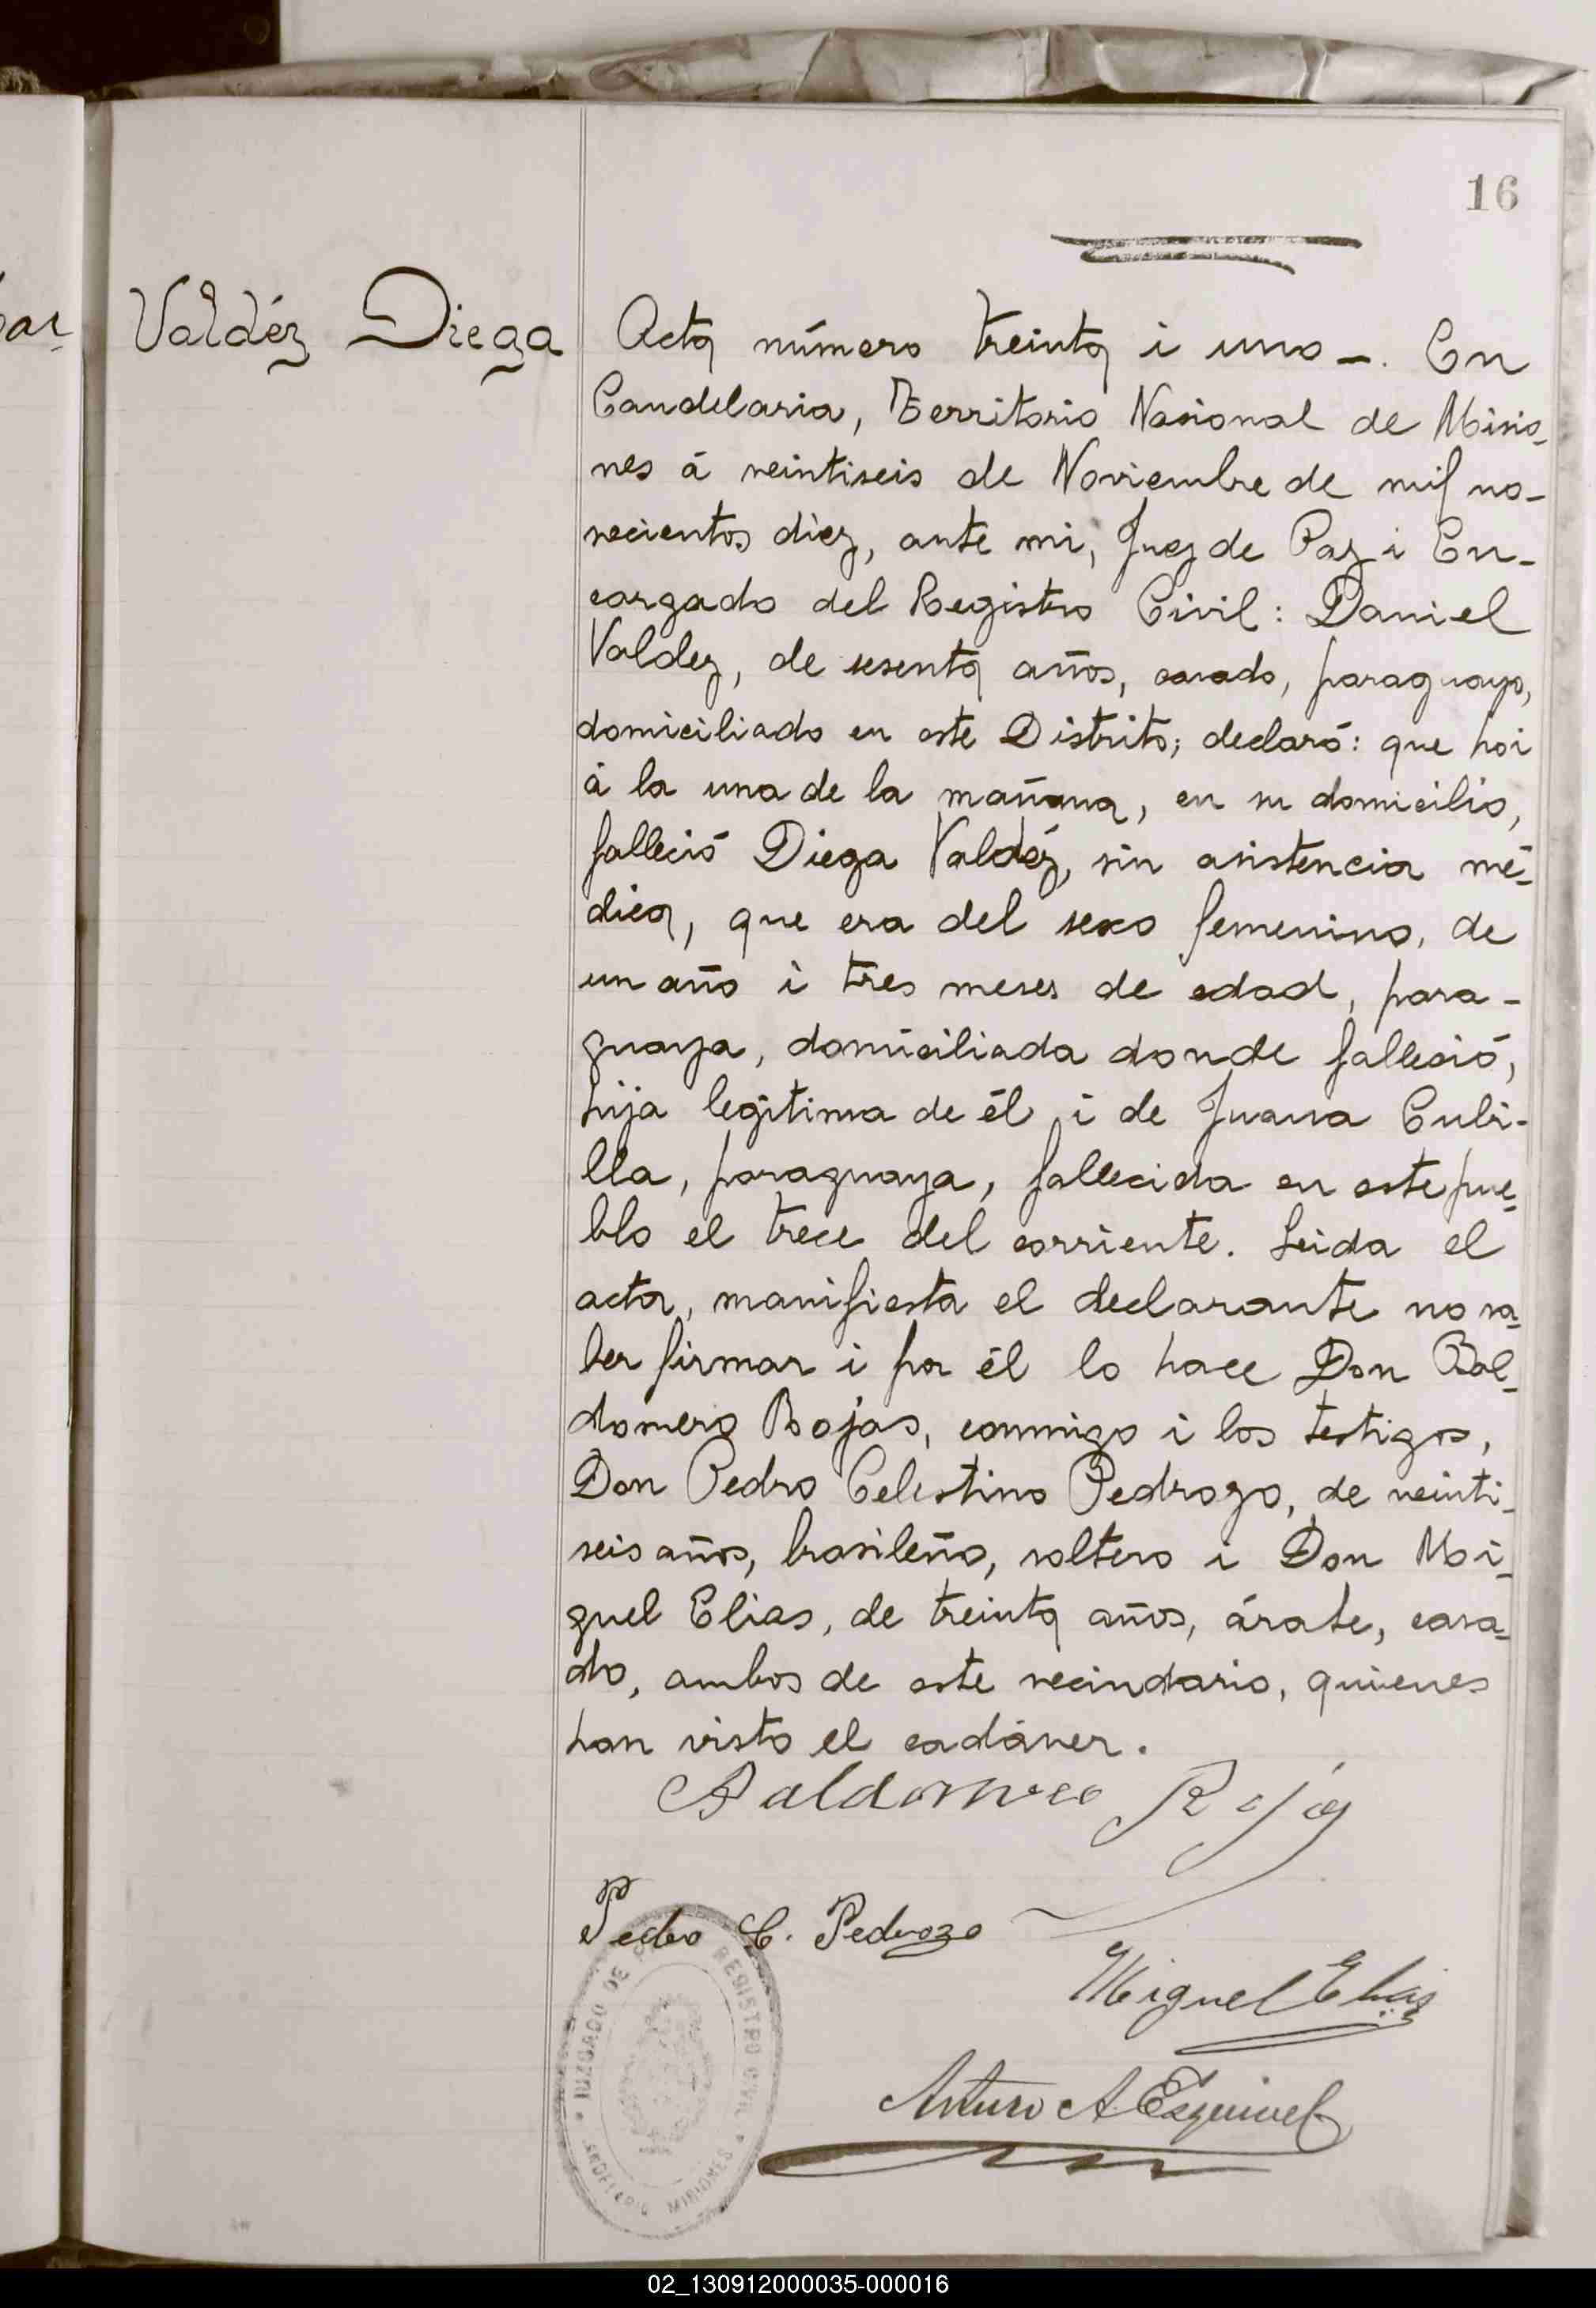 16
Valdéz Diega
Acta número treinta i uno-. En
Candelaria, Territorio Nacional de Misio-
nes á veintiseis de Noviembre de mil no-
vecientos diez, ante mi, Juez de Paz i En-
cargado del Registro Civil: Daniel
Valdez, de sesenta años, casado, paraguayo,
domiciliado en este Distrito; declaró: que hoi
á la una de la mañana, en su domicilio,
falleció Diega Valdéz, sin asistencia mé-
dica, que era del sexo femenino, de
un año i tres meses de edad, para-
guaya, domiciliada donde falleció,
hija legitima de él i de Juana Cubi-
lla, paraguaya, fallecida en este pue-
blo el trece del corriente. Leida el
acta, manifiesta el declarante no sa-
ber firmar i por él lo hace Don Bal-
domero Rojas, conmigo i los testigos,
Don Pedro Celestino Pedrozo, de veinti-
seis años, brasileño, soltero i Don Mi-
guel Elias, de treinta años, árabe, casa-
do, ambos de este vecindario, quienes
han visto el cadáver.
Baldomero Rojas
Pedro C. Pedrozo
Miguel Elias
Arturo A. Esquivel
JUZGADO DE REGISTRO CIVIL
MISIONES
02_130912000035-000016